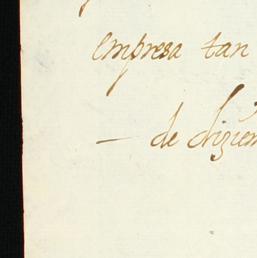 empresa tan
— de diziem